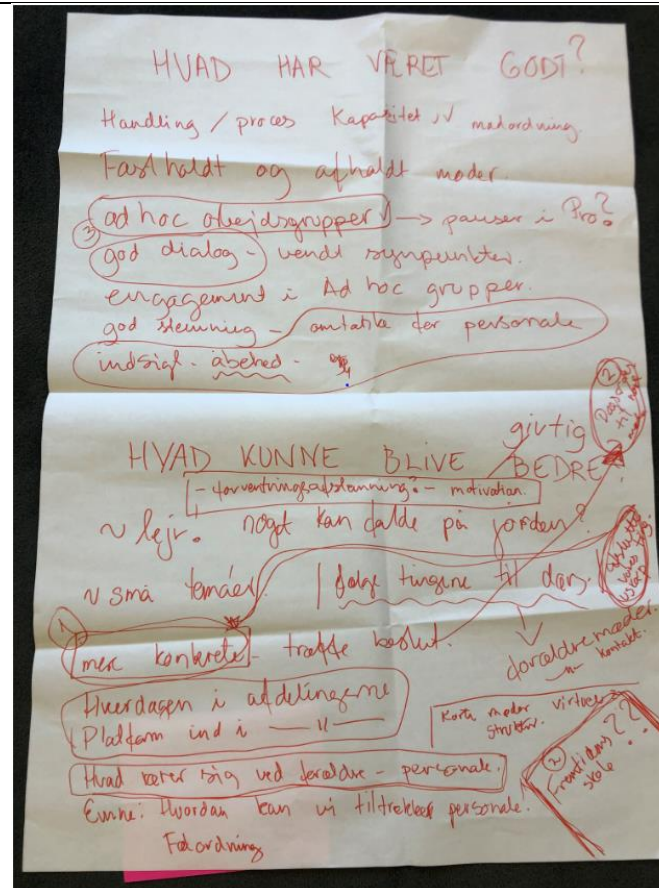 HVAD HAR VÆRET GODT?
Handling / proces Kapacitet iV madordning.
Fastholdt og afholdt møder.
③ ad hoc arbejdsgrupper → pauser i Pro?
god dialog - vendt synspunkter.
engagement i Ad hoc grupper.
god stemning - omtale der personale
indsigt - åbenhed -
②
Dagsorden til
givtig
HVAD KUNNE BLIVE BEDRE
- forventningsafstemning? - motivation.
~ lejr. noget kan falde på jorden?
~ små temaer. følge tingene til dørs.
①
mere konkrete - træffe beslut.
forældremøder.
-"- kontakt.
Hverdagen i afdelingerne
Platform ind i — " —
Korte møder virtuel
struktur.
②
Fremtidens ??
skole
Hvad rører sig ved forældre - personale.
Emne: Hvordan kan vi tiltrække personale.